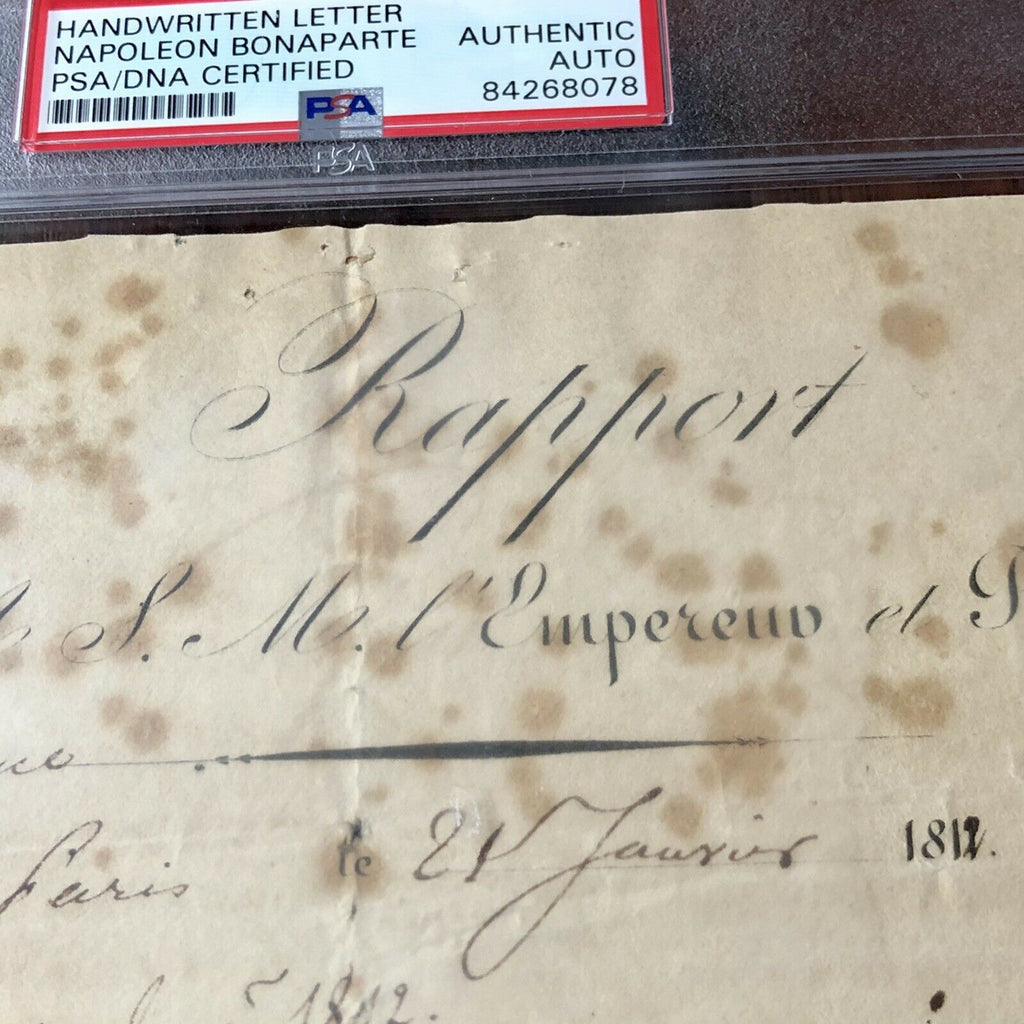 HANDWRITTEN LETTER
NAPOLEON BONAPARTE
PSA/DNA CERTIFIED
AUTHENTIC
AUTO
84268078
PSA
PSA
Rapport
S. M. l'Empereur et
Paris le 21 Janvier 1812.
1812.